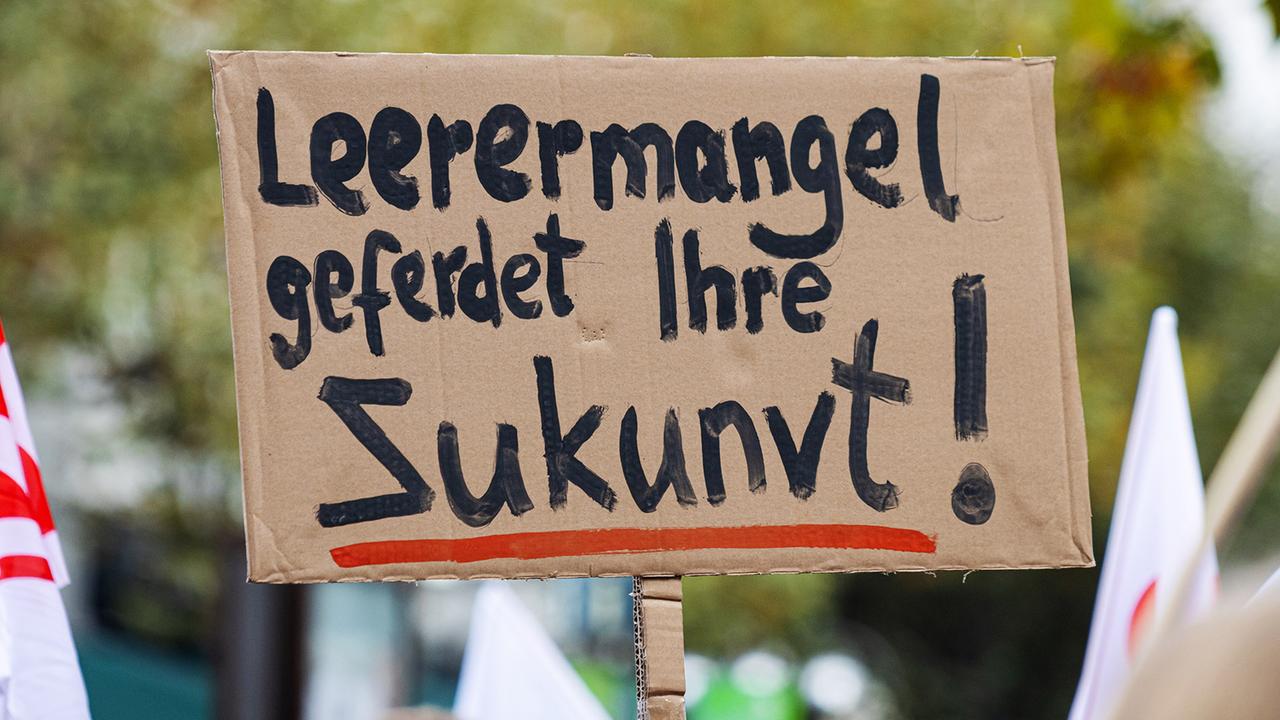 Leerermangel
geferdet Ihre
Zukunvt!